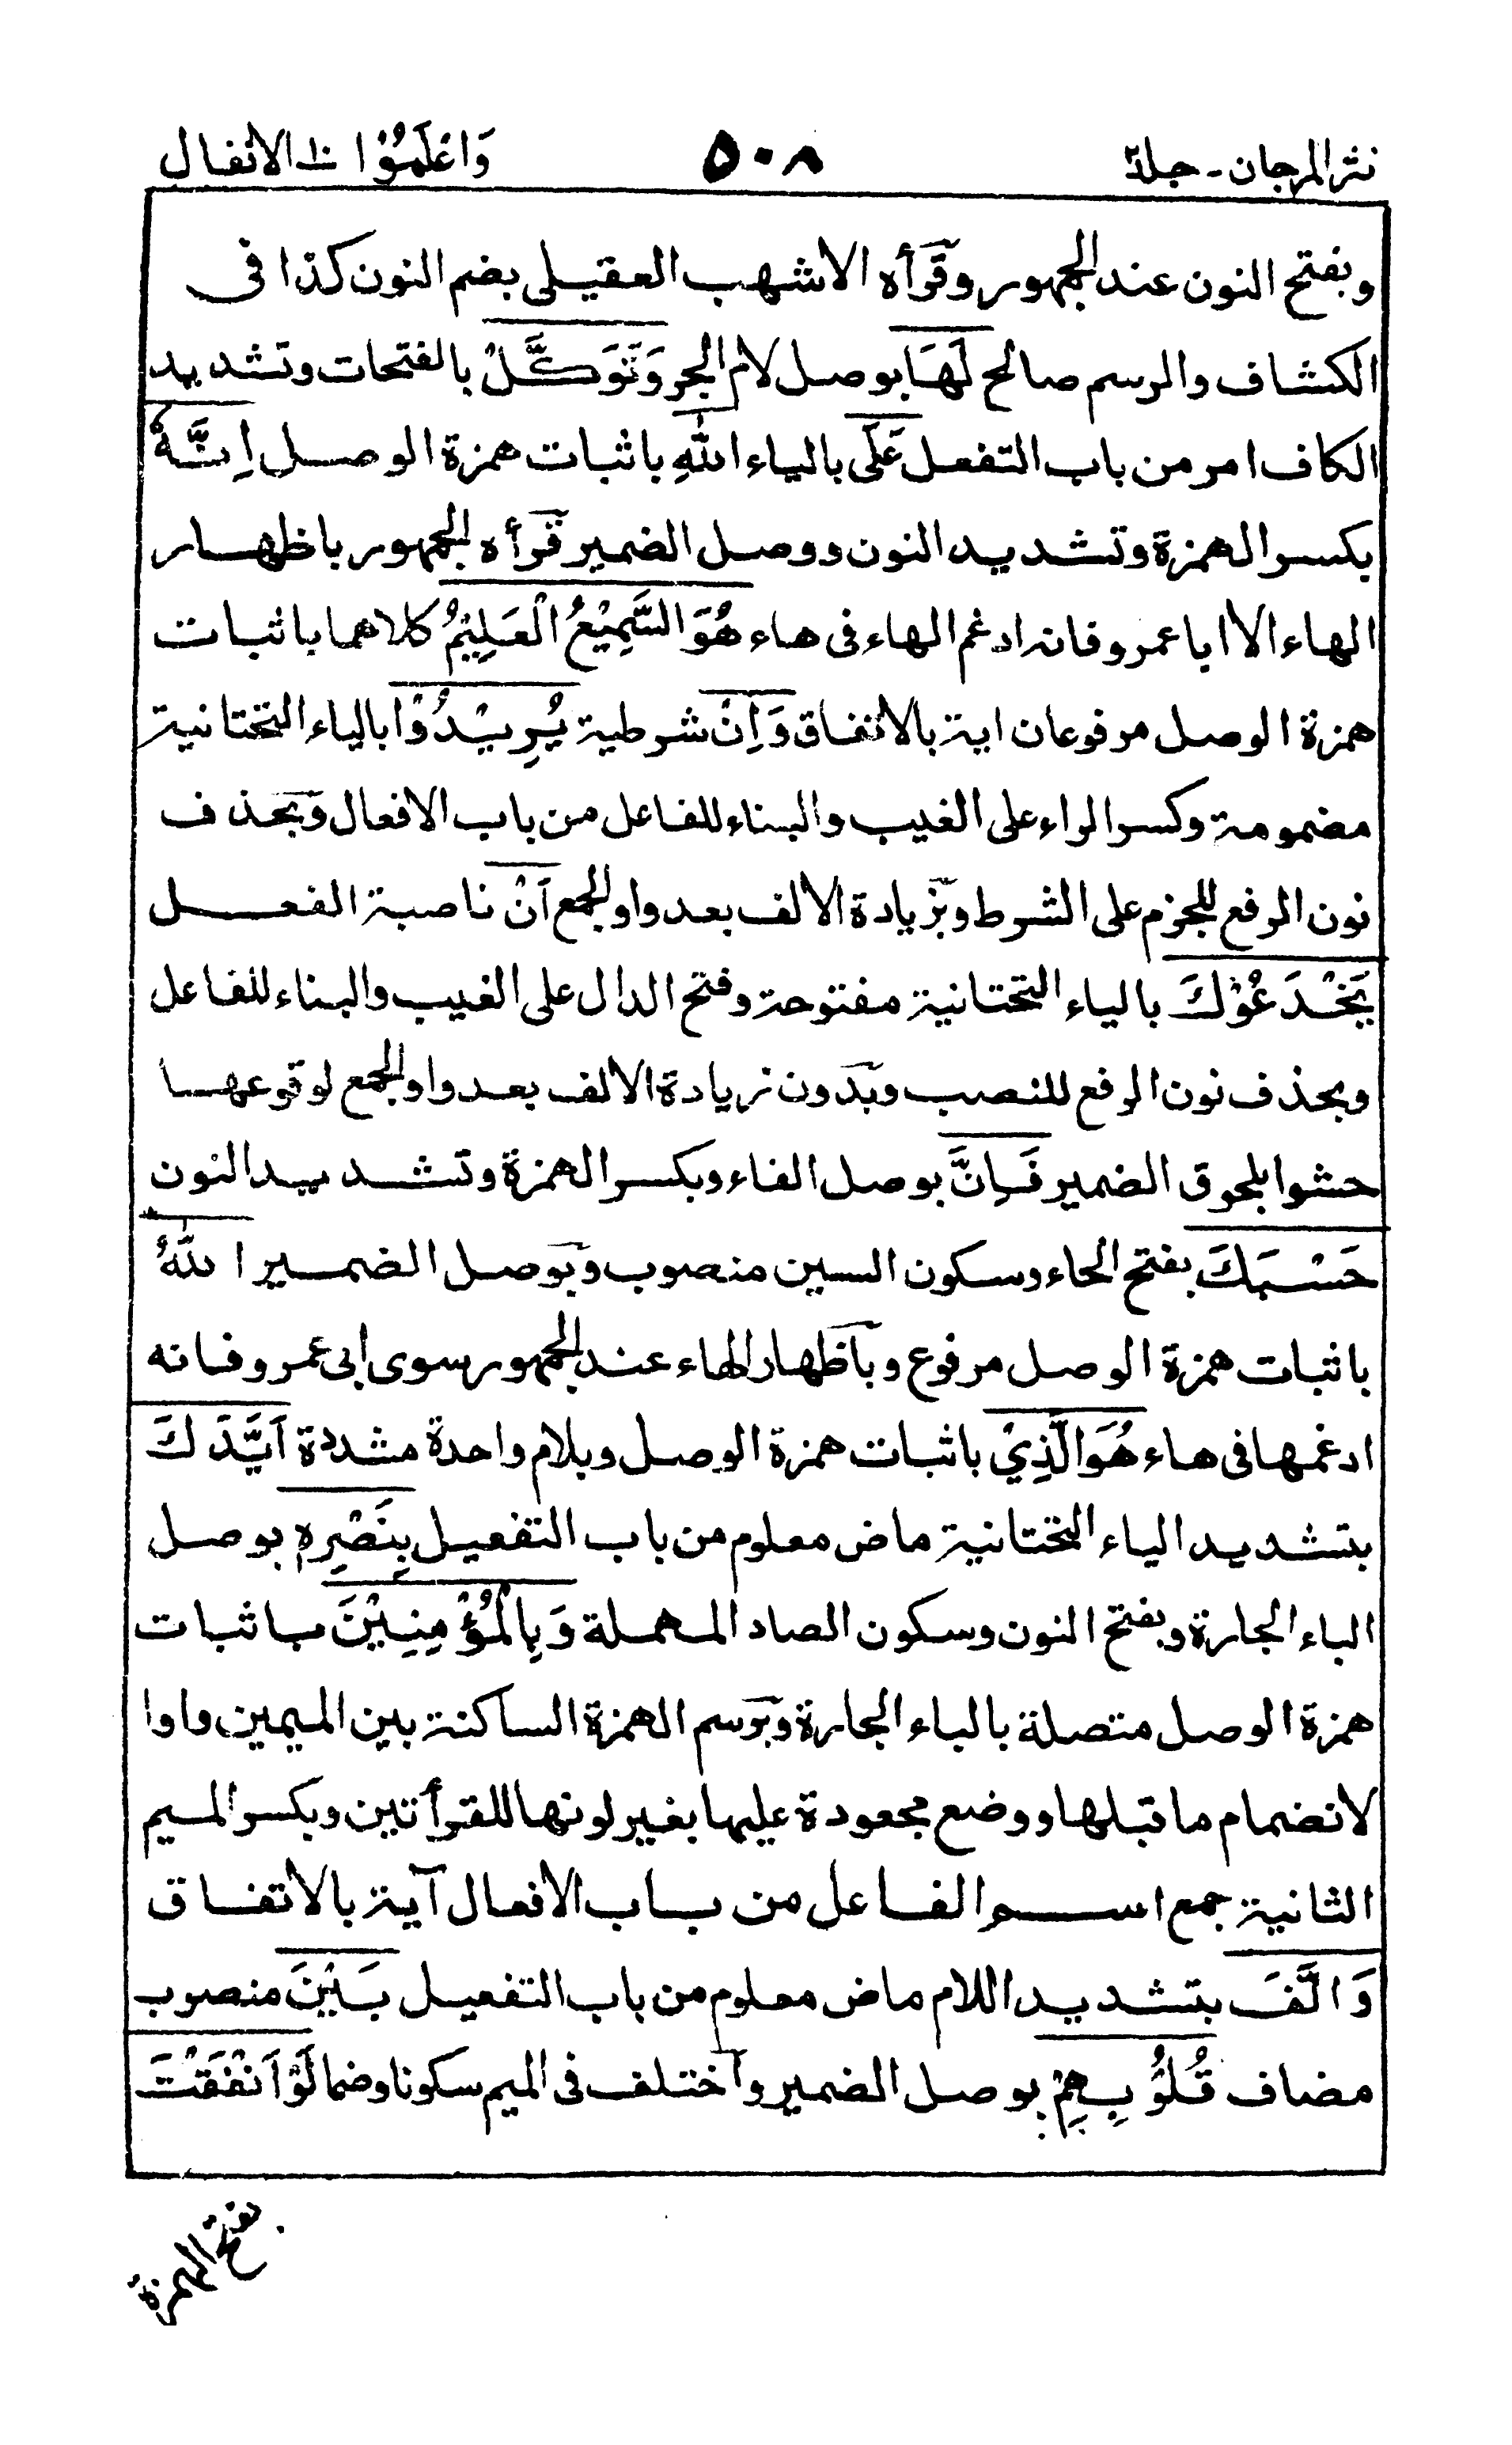 نثر المرجان - جلد۲ ٥٠٨ وَاعْلَمُوْا ۱۰ الانفال
وبفتح النون عند الجمهور وقرأه الاشهب العقيلى بضم النون كذا فى
الكشاف والرسم صالح لَهَا بوصل لام الجر وَتَوَكَّلْ بالفتحات وتشديد
الكاف امر من باب التفعل عَلَى بالياء اللّٰهِ باثبات همزة الوصل اِنَّهٗ
بكسر الهمزة وتشديد النون ووصل الضمير قرأه الجمهور باظهار
الهاء الا ابا عمرو فانه ادغم الهاء فى هاء هُوَ السَّمِيْعُ الْعَلِيْمُ كلاهما باثبات
همزة الوصل مرفوعان اية بالاتفاق وَاِنْ شرطية يُرِيْدُوْا بالياء التحتانية
مضمومة وكسر الراء على الغيب والبناء للفاعل من باب الافعال وبحذف
نون الرفع للجزم على الشرط وبزيادة الالف بعد واو الجمع اَنْ ناصبة الفعل
يَخْدَعُوْكَ بالياء التحتانية مفتوحة وفتح الدال على الغيب والبناء للفاعل
وبحذف نون الرفع للنصب وبدون زيادة الالف بعد واو الجمع لوقوعها
حشوا بلحوق الضمير فَاِنَّ بوصل الفاء وبكسر الهمزة وتشديد النون
حَسْبَكَ بفتح الحاء وسكون السين منصوب وبوصل الضمير اللّٰهُ
باثبات همزة الوصل مرفوع وباظهار الهاء عند الجمهور سوى ابى عمرو فانه
ادغمها فى هاء هُوَ الَّذِيْ باثبات همزة الوصل وبلام واحدة مشددة اَيَّدَكَ
بتشديد الياء التحتانية ماض معلوم من باب التفعيل بِنَصْرِهٖ بوصل
الباء الجارة وبفتح النون وسكون الصاد المهملة وَبِالْمُؤْمِنِيْنَ باثبات
همزة الوصل متصلة بالباء الجارة وبرسم الهمزة الساكنة بين الميمين واوا
لانضمام ما قبلها ووضع مجعودة عليها بغير لونها للقرأتين وبكسر الميم
الثانية جمع اسم الفاعل من باب الافعال آية بالاتفاق
وَالَّفَ بتشديد اللام ماض معلوم من باب التفعيل بَيْنَ منصوب
مضاف قُلُوْبِهِمْ بوصل الضمير واختلف فى الميم سكونا وضما لَوْ اَنْفَقْتَ
بفتح الهمزة